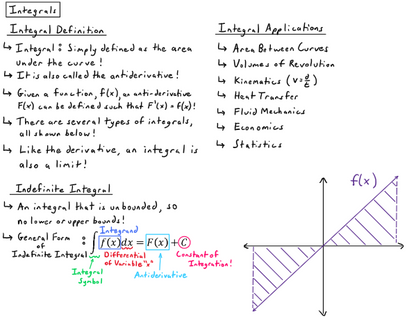 Integrals
Integral Definition
↳ Integral : Simply defined as the area
under the curve!
↳ It is also called the antiderivative!
↳ Given a function, f(x), an anti-derivative
F(x) can be defined such that F'(x) = f(x)!
↳ There are several types of integrals,
all shown below!
↳ Like the derivative, an integral is
also a limit!
Indefinite Integral
↳ An integral that is unbounded, so
no lower or upper bounds!
↳ General Form of Indefinite Integral : ∫ f(x)dx = F(x) + C
Integrand
Integral Symbol
Differential of Variable "x"
Antiderivative
Constant of Integration!
Integral Applications
↳ Area Between Curves
↳ Volumes of Revolution
↳ Kinematics (v = d/t)
↳ Heat Transfer
↳ Fluid Mechanics
↳ Economics
↳ Statistics
f(x)